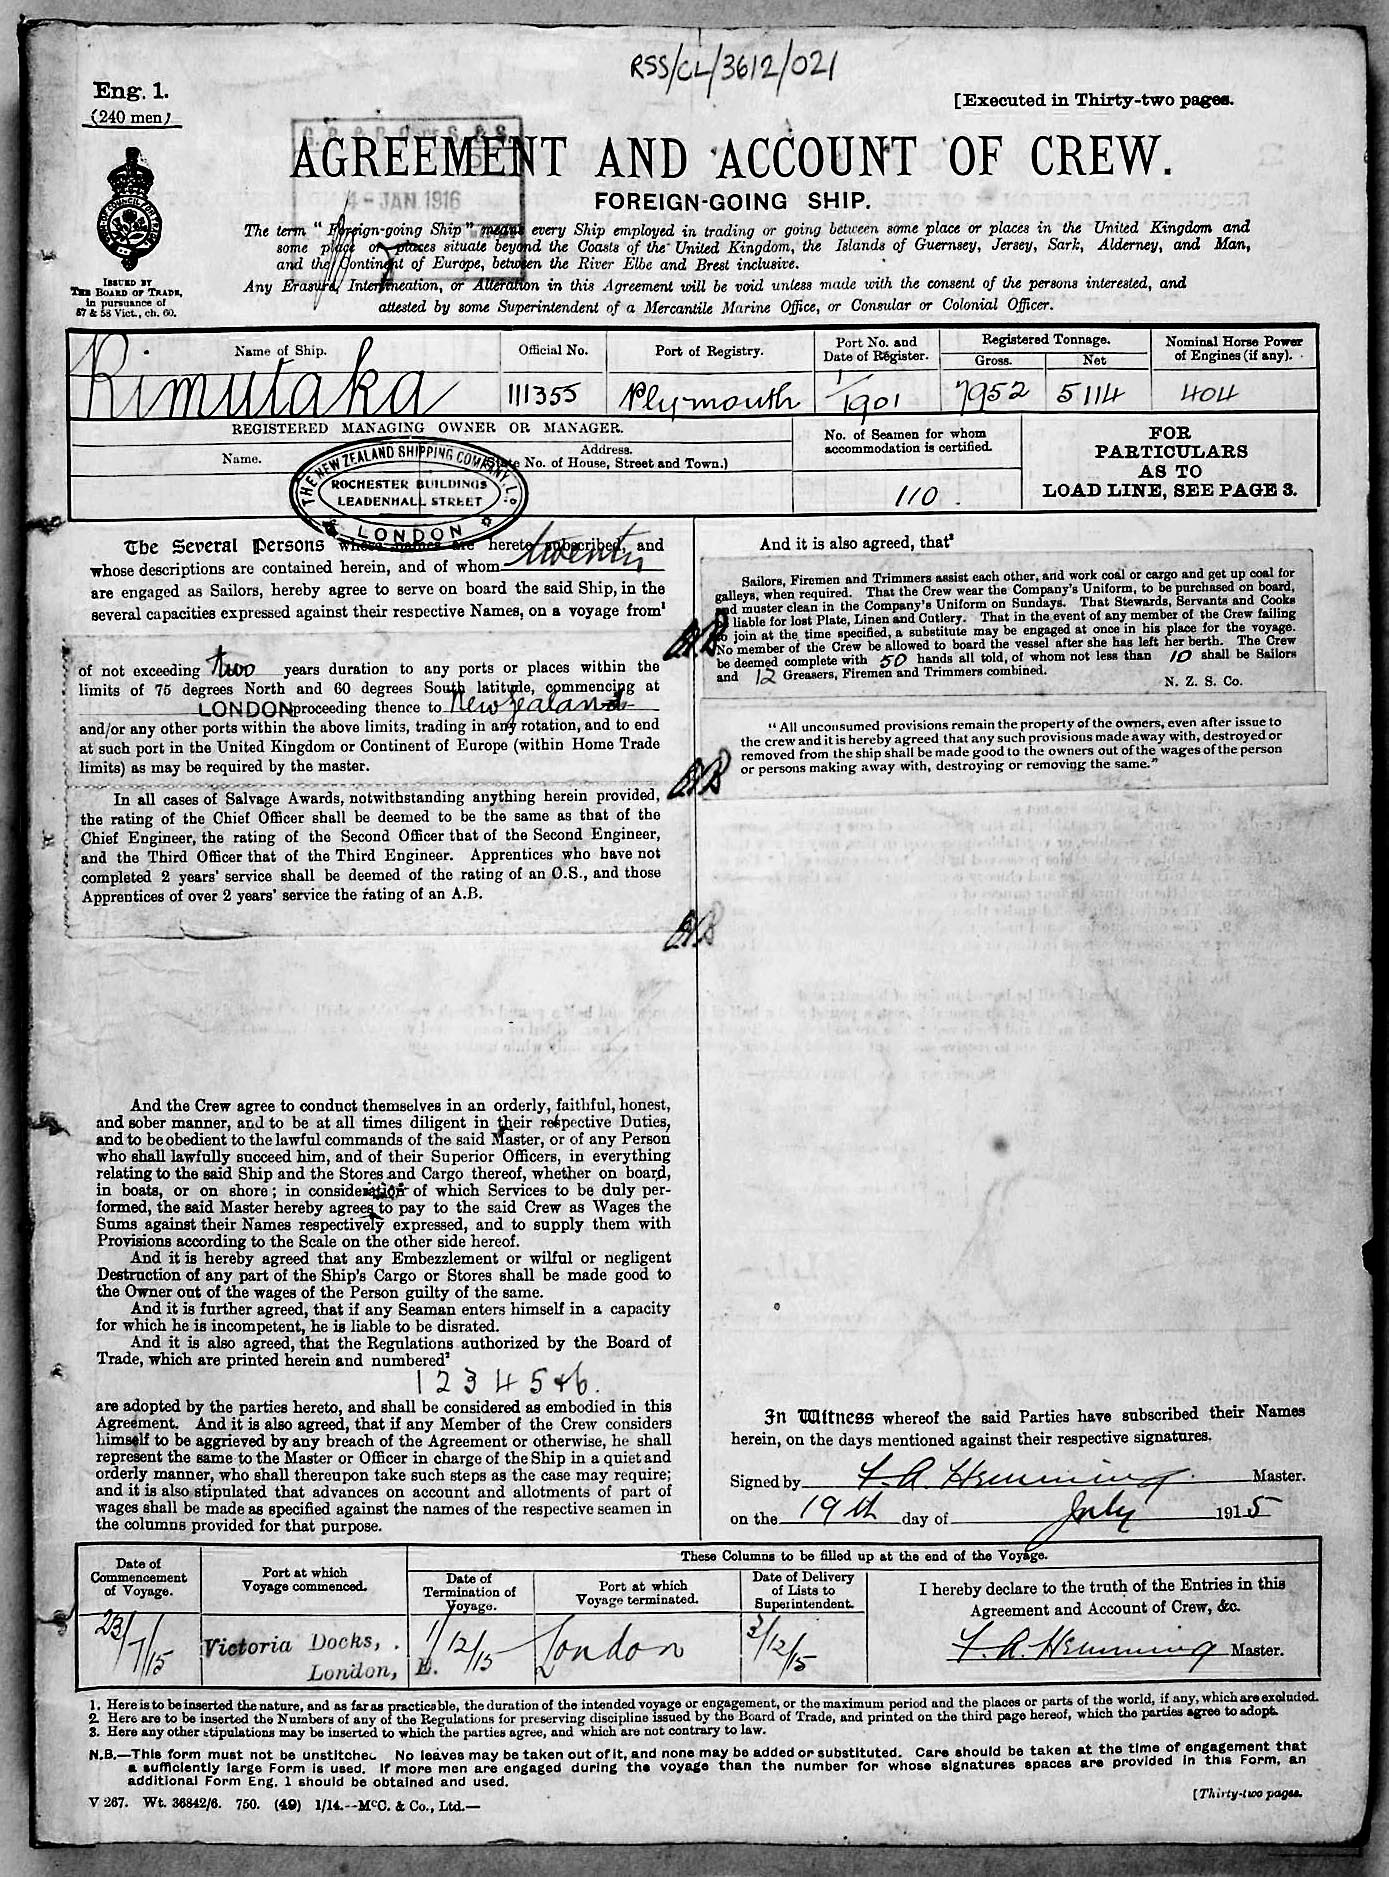 RSS/CL/3612/021
Eng. 1.
(240 men)
[Executed in Thirty-two pages.
AGREEMENT AND ACCOUNT OF CREW.
4-JAN 1916
FOREIGN-GOING SHIP.
The term "Foreign-going Ship" means every Ship employed in trading or going between some place or places in the United Kingdom and
some place or places situate beyond the Coasts of the United Kingdom, the Islands of Guernsey, Jersey, Sark, Alderney, and Man,
and the Continent of Europe, between the River Elbe and Brest inclusive.
Any Erasure, Interlineation, or Alteration in this Agreement will be void unless made with the consent of the persons interested, and
attested by some Superintendent of a Mercantile Marine Office, or Consular or Colonial Officer.
ISSUED BY
THE BOARD OF TRADE,
in pursuance of
57 & 58 Vict., ch. 60.
Name of Ship.
Official No.
Port of Registry.
Port No. and
Date of Register.
Registered Tonnage.
Gross.
Net
Nominal Horse Power
of Engines (if any).
Rimutaka
111355
Plymouth
1/1901
7952
5114
404
REGISTERED MANAGING OWNER OR MANAGER.
Name.
Address.
(State No. of House, Street and Town.)
THE NEW ZEALAND SHIPPING COMPANY, LD
ROCHESTER BUILDINGS
LEADENHALL STREET
LONDON
No. of Seamen for whom
accommodation is certified.
110.
FOR
PARTICULARS
AS TO
LOAD LINE, SEE PAGE 3.
The Several Persons whose names are hereto subscribed, and
whose descriptions are contained herein, and of whom twenty
are engaged as Sailors, hereby agree to serve on board the said Ship, in the
several capacities expressed against their respective Names, on a voyage from¹
of not exceeding two years duration to any ports or places within the
limits of 75 degrees North and 60 degrees South latitude, commencing at
LONDON proceeding thence to New Zealand
and/or any other ports within the above limits, trading in any rotation, and to end
at such port in the United Kingdom or Continent of Europe (within Home Trade
limits) as may be required by the master.
In all cases of Salvage Awards, notwithstanding anything herein provided,
the rating of the Chief Officer shall be deemed to be the same as that of the
Chief Engineer, the rating of the Second Officer that of the Second Engineer,
and the Third Officer that of the Third Engineer. Apprentices who have not
completed 2 years' service shall be deemed of the rating of an O.S., and those
Apprentices of over 2 years' service the rating of an A.B.
And the Crew agree to conduct themselves in an orderly, faithful, honest,
and sober manner, and to be at all times diligent in their respective Duties,
and to be obedient to the lawful commands of the said Master, or of any Person
who shall lawfully succeed him, and of their Superior Officers, in everything
relating to the said Ship and the Stores and Cargo thereof, whether on board,
in boats, or on shore; in consideration of which Services to be duly per-
formed, the said Master hereby agrees to pay to the said Crew as Wages the
Sums against their Names respectively expressed, and to supply them with
Provisions according to the Scale on the other side hereof.
And it is hereby agreed that any Embezzlement or wilful or negligent
Destruction of any part of the Ship's Cargo or Stores shall be made good to
the Owner out of the wages of the Person guilty of the same.
And it is further agreed, that if any Seaman enters himself in a capacity
for which he is incompetent, he is liable to be disrated.
And it is also agreed, that the Regulations authorized by the Board of
Trade, which are printed herein and numbered²
1 2 3 4 5 & 6.
are adopted by the parties hereto, and shall be considered as embodied in this
Agreement. And it is also agreed, that if any Member of the Crew considers
himself to be aggrieved by any breach of the Agreement or otherwise, he shall
represent the same to the Master or Officer in charge of the Ship in a quiet and
orderly manner, who shall thereupon take such steps as the case may require;
and it is also stipulated that advances on account and allotments of part of
wages shall be made as specified against the names of the respective seamen in
the columns provided for that purpose.
And it is also agreed, that³
Sailors, Firemen and Trimmers assist each other, and work coal or cargo and get up coal for
galleys, when required. That the Crew wear the Company's Uniform, to be purchased on board,
and muster clean in the Company's Uniform on Sundays. That Stewards, Servants and Cooks
liable for lost Plate, Linen and Cutlery. That in the event of any member of the Crew failing
to join at the time specified, a substitute may be engaged at once in his place for the voyage.
No member of the Crew be allowed to board the vessel after she has left her berth. The Crew
be deemed complete with 50 hands all told, of whom not less than 10 shall be Sailors
and 12 Greasers, Firemen and Trimmers combined.
N. Z. S. Co.
"All unconsumed provisions remain the property of the owners, even after issue to
the crew and it is hereby agreed that any such provisions made away with, destroyed or
removed from the ship shall be made good to the owners out of the wages of the person
or persons making away with, destroying or removing the same."
In Witness whereof the said Parties have subscribed their Names
herein, on the days mentioned against their respective signatures.
Signed by F. A. Hemming Master.
on the 19th day of July 1915
Date of
Commencement
of Voyage.
Port at which
Voyage commenced.
These Columns to be filled up at the end of the Voyage.
Date of
Termination of
Voyage.
Port at which
Voyage terminated.
Date of Delivery
of Lists to
Superintendent.
I hereby declare to the truth of the Entries in this
Agreement and Account of Crew, &c.
23/7/15
Victoria Docks,
London, E.
1/12/15
London
3/12/15
F. A. Hemming Master.
1. Here is to be inserted the nature, and as far as practicable, the duration of the intended voyage or engagement, or the maximum period and the places or parts of the world, if any, which are excluded.
2. Here are to be inserted the Numbers of any of the Regulations for preserving discipline issued by the Board of Trade, and printed on the third page hereof, which the parties agree to adopt.
3. Here any other stipulations may be inserted to which the parties agree, and which are not contrary to law.
N.B.—This form must not be unstitched. No leaves may be taken out of it, and none may be added or substituted. Care should be taken at the time of engagement that
a sufficiently large Form is used. If more men are engaged during the voyage than the number for whose signatures spaces are provided in this Form, an
additional Form Eng. 1 should be obtained and used.
V 267. Wt. 36842/6. 750. (49) 1/14.--McC. & Co., Ltd.—
[Thirty-two pages.